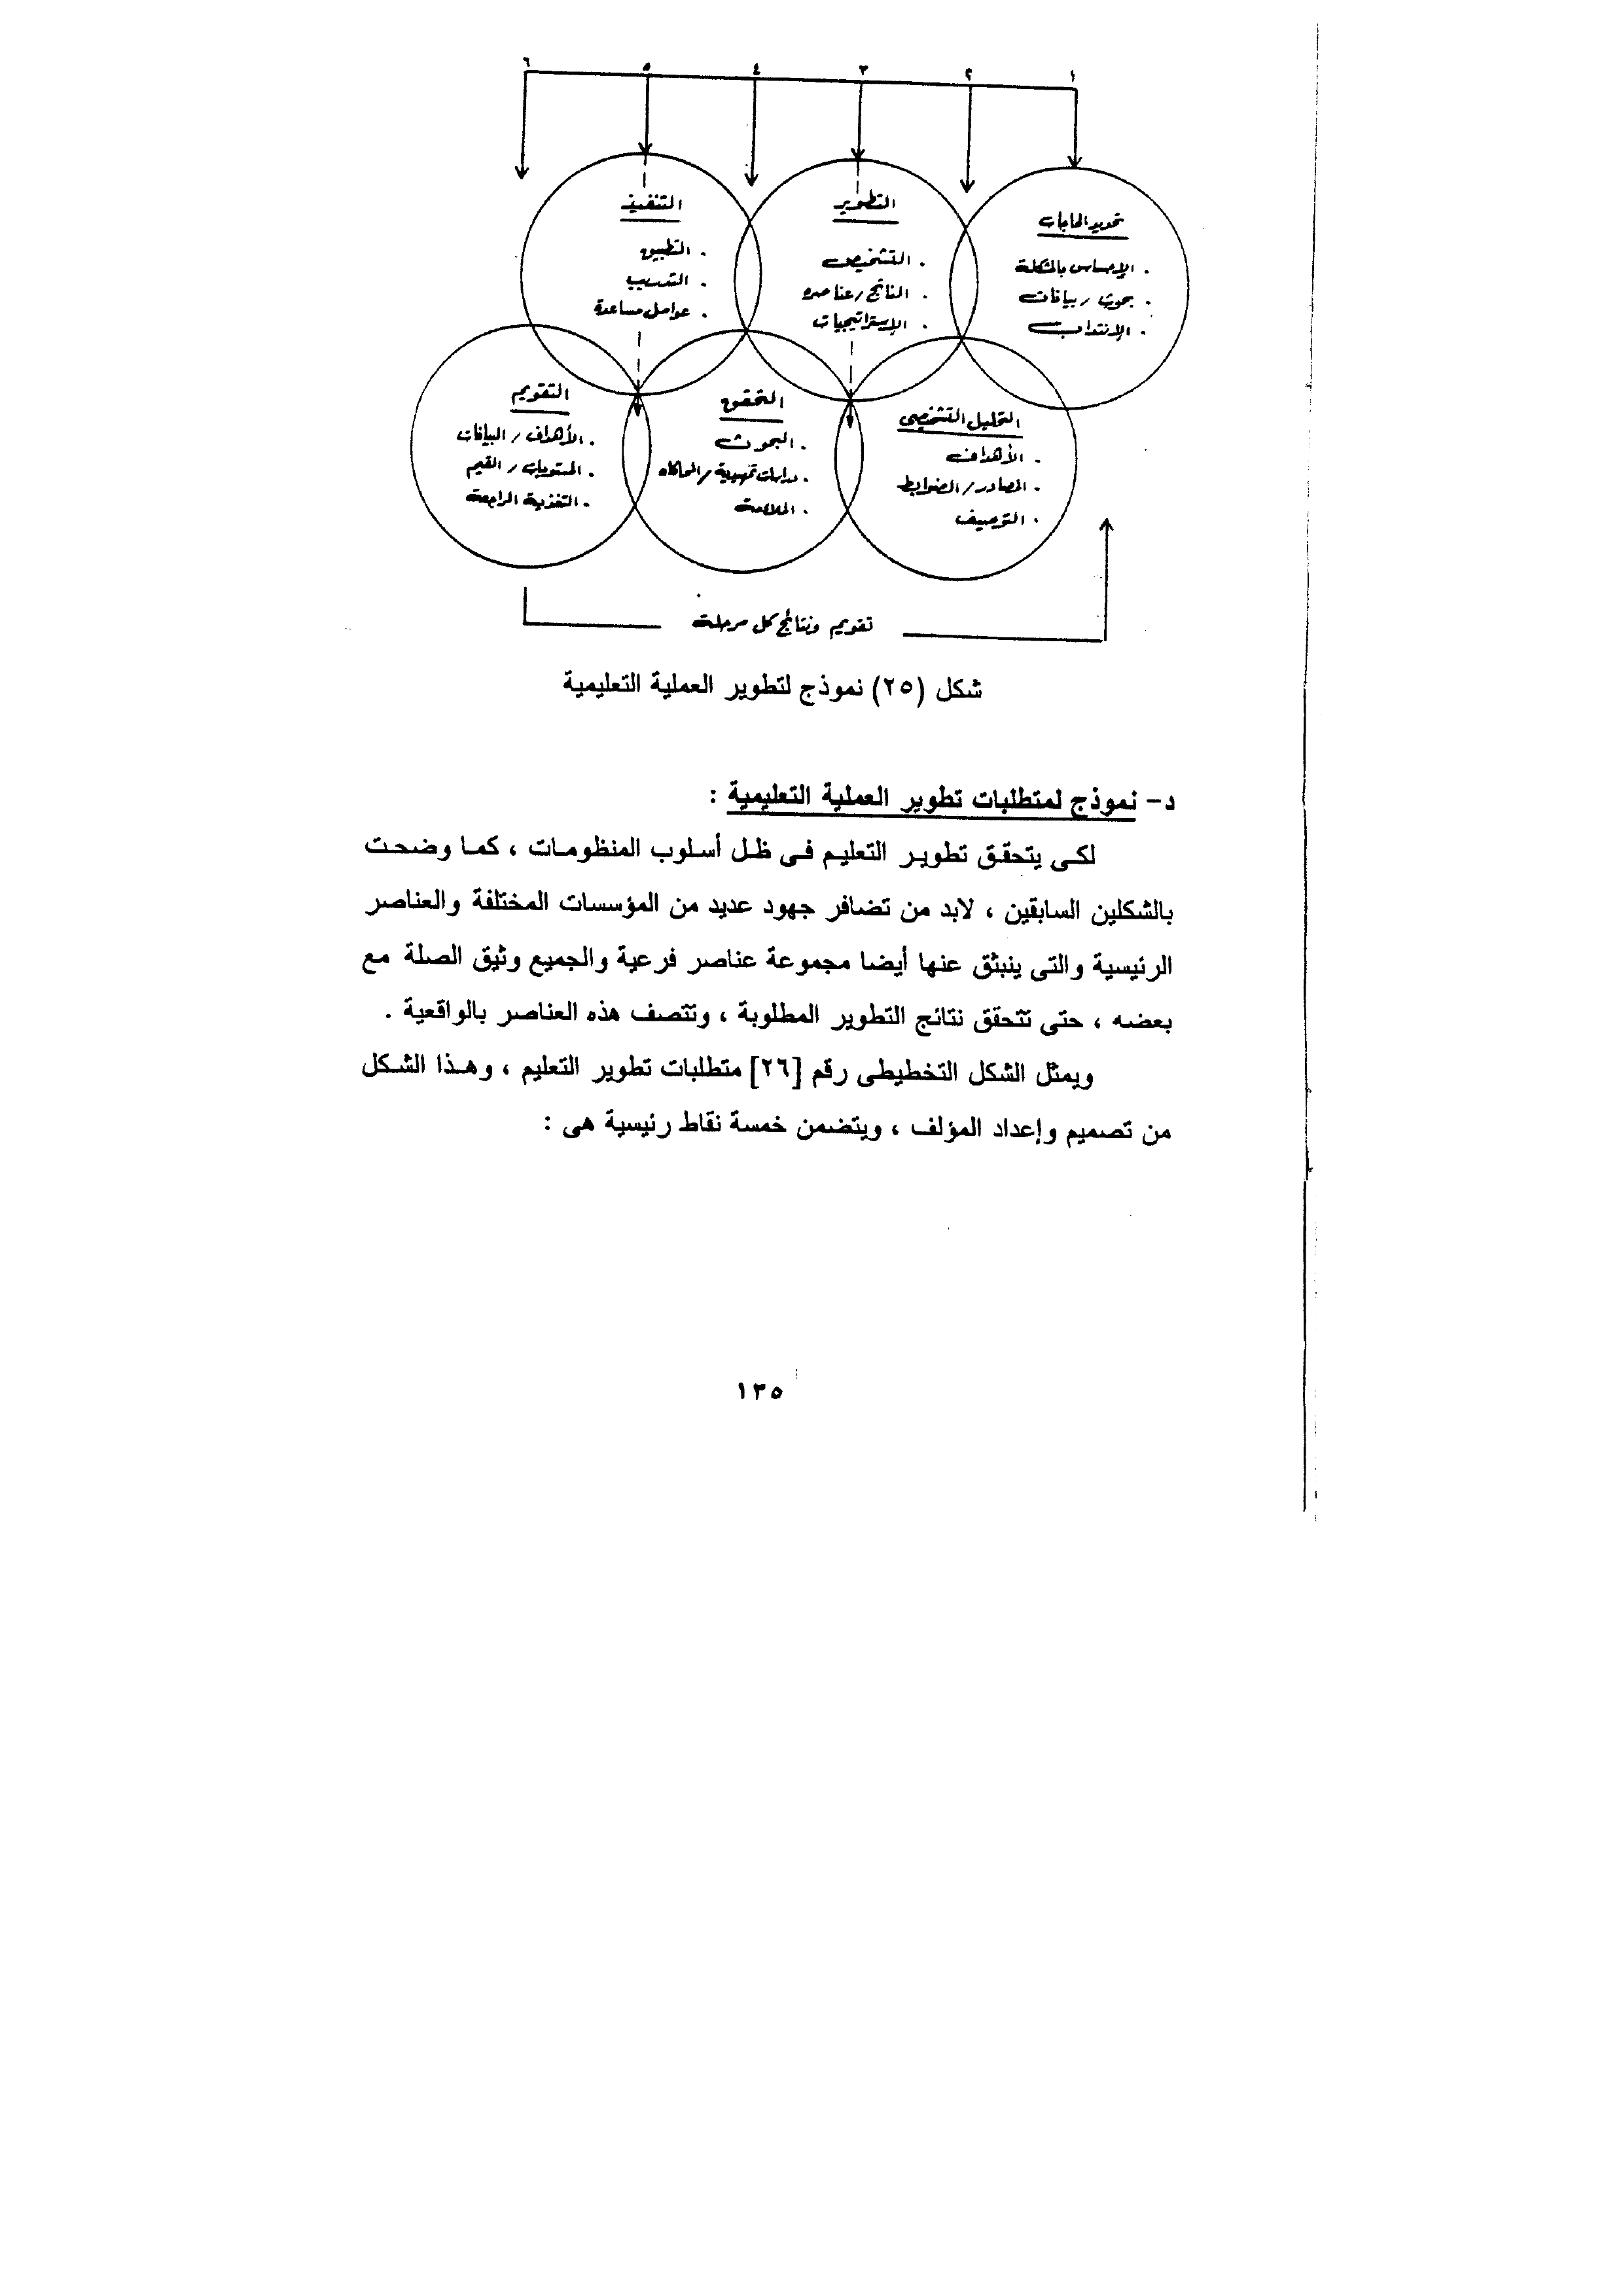 ١ ٢ ٣ ٤ ٥ ٦
تحديد الحاجات
. الإحساس بالمشكلة
. بحوث / بيانات
. الانتداب
التحليل التشخيصى
. الأهداف
. المصادر / الضوابط
. التوصيف
التطوير
. التشخيص
. الناتج / عناصره
. الإستراتيجيات
التحقق
. البحوث
. دراسات تمهيدية / المحاكاه
. الملاءمة
التنفيذ
. التطبيق
. التدريب
. عوامل مساعدة
التقويم
. الأهداف / البيانات
. المستويات / القيم
. التغذية الراجعة
تقويم ونتائج كل مرحلة
شكل (٢٥) نموذج لتطوير العملية التعليمية
د- نموذج لمتطلبات تطوير العملية التعليمية :
لكى يتحقق تطوير التعليم فى ظل أسلوب المنظومات ، كما وضحت
بالشكلين السابقين ، لابد من تضافر جهود عديد من المؤسسات المختلفة والعناصر
الرئيسية والتى ينبثق عنها أيضا مجموعة عناصر فرعية والجميع وثيق الصلة مع
بعضه ، حتى تتحقق نتائج التطوير المطلوبة ، وتتصف هذه العناصر بالواقعية .
ويمثل الشكل التخطيطى رقم [٢٦] متطلبات تطوير التعليم ، وهذا الشكل
من تصميم وإعداد المؤلف ، ويتضمن خمسة نقاط رئيسية هى :
١٣٥